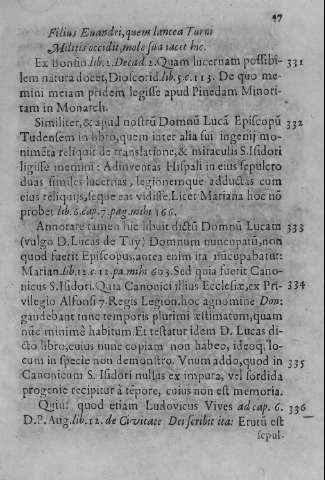 47
Filius Euandri, quem lancea Turni
Militis occidit, mole sua iacet hic.
Ex Bonfin lib. 1. Decad. 2. Quam lucernam possibi- 331
lem natura docet, Dioscorid. lib. 5. c. 115. De quo me-
mini meiam pridem legisse apud Pinedam Minori-
tam in Monarch.
Similiter, & apud nostrũ Domnũ Lucã Episcopũ 332
Tudensem in libro, quem inter alia sui ingenij mo-
nimẽta reliquit de translatione, & miraculis S. Isidori
ligisse memini: Adinventas Hispali in eius sepulcro
duas similes lucernas, legionemque adductas cum
eius reliquijs, seque eas vidisse. Licet Mariana hoc nõ
probet lib. 6. cap. 7. pag. mihi 166.
Annotare tamen hic libuit dictũ Domnũ Lucam 333
(vulgo D. Lucas de Tuy) Domnum nuncupatũ, non
quod fuerit Episcopus, antea enim ita nũcupabatur:
Marian. lib. 12. c. 12. pa. mihi 603. Sed quia fuerit Cano-
nicus S. Isidori. Quia Canonici illius Ecclesiæ, ex Pri- 334
vilegio Alfonsi 7. Regis Legion. hoc agnomine Don:
gaudebant tunc temporis plurimi æstimatum, quam
nũc minimè habitum. Et testatur idem D. Lucas di-
cto libro, cuius nunc copiam non habeo, ideoq; lo-
cum in specie non demonstro. Vnum addo, quod in 335
Canonicum S. Isidori nullus ex impura, vel sordida
progenie recipitur à tẽpore, cuius non est memoria.
Quin: quod etiam Ludovicus Vives ad cap. 6. 336
D. P. Aug. lib. 12. de Civitate Dei scribit ita: Erutũ est
sepul-